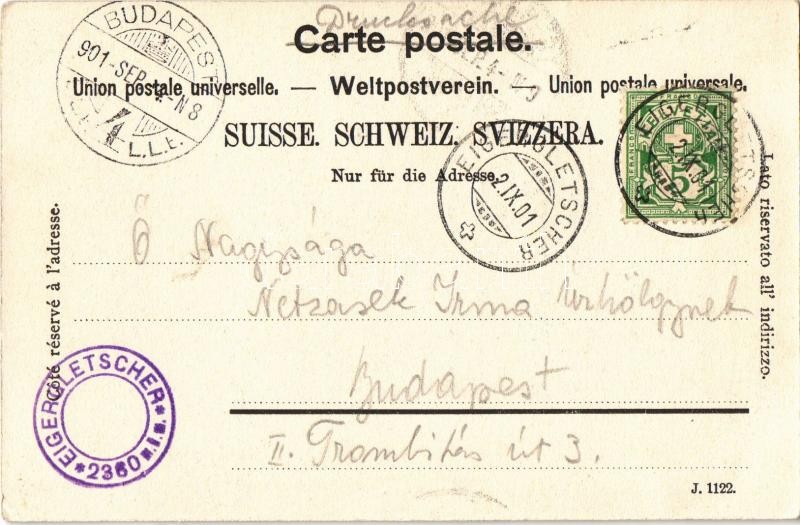 Drucksache
Carte postale.
Union postale universelle. — Weltpostverein. — Union postale universale.
SUISSE. SCHWEIZ. SVIZZERA.
Nur für die Adresse.
BUDAPEST
901-SEP. 4-N8
L.L.E.
EIGERGLETSCHER
2.IX.01
EIGERGLETSCHER
2.IX.01
FRANCO
5
Côté réservé à l'adresse.
Lato riservato all' indirizzo.
Ő Nagysága
Irma Úrhölgynek
Budapest
II. Trombitás út 3.
EIGERGLETSCHER
*2360 m.ü.m.*
J. 1122.